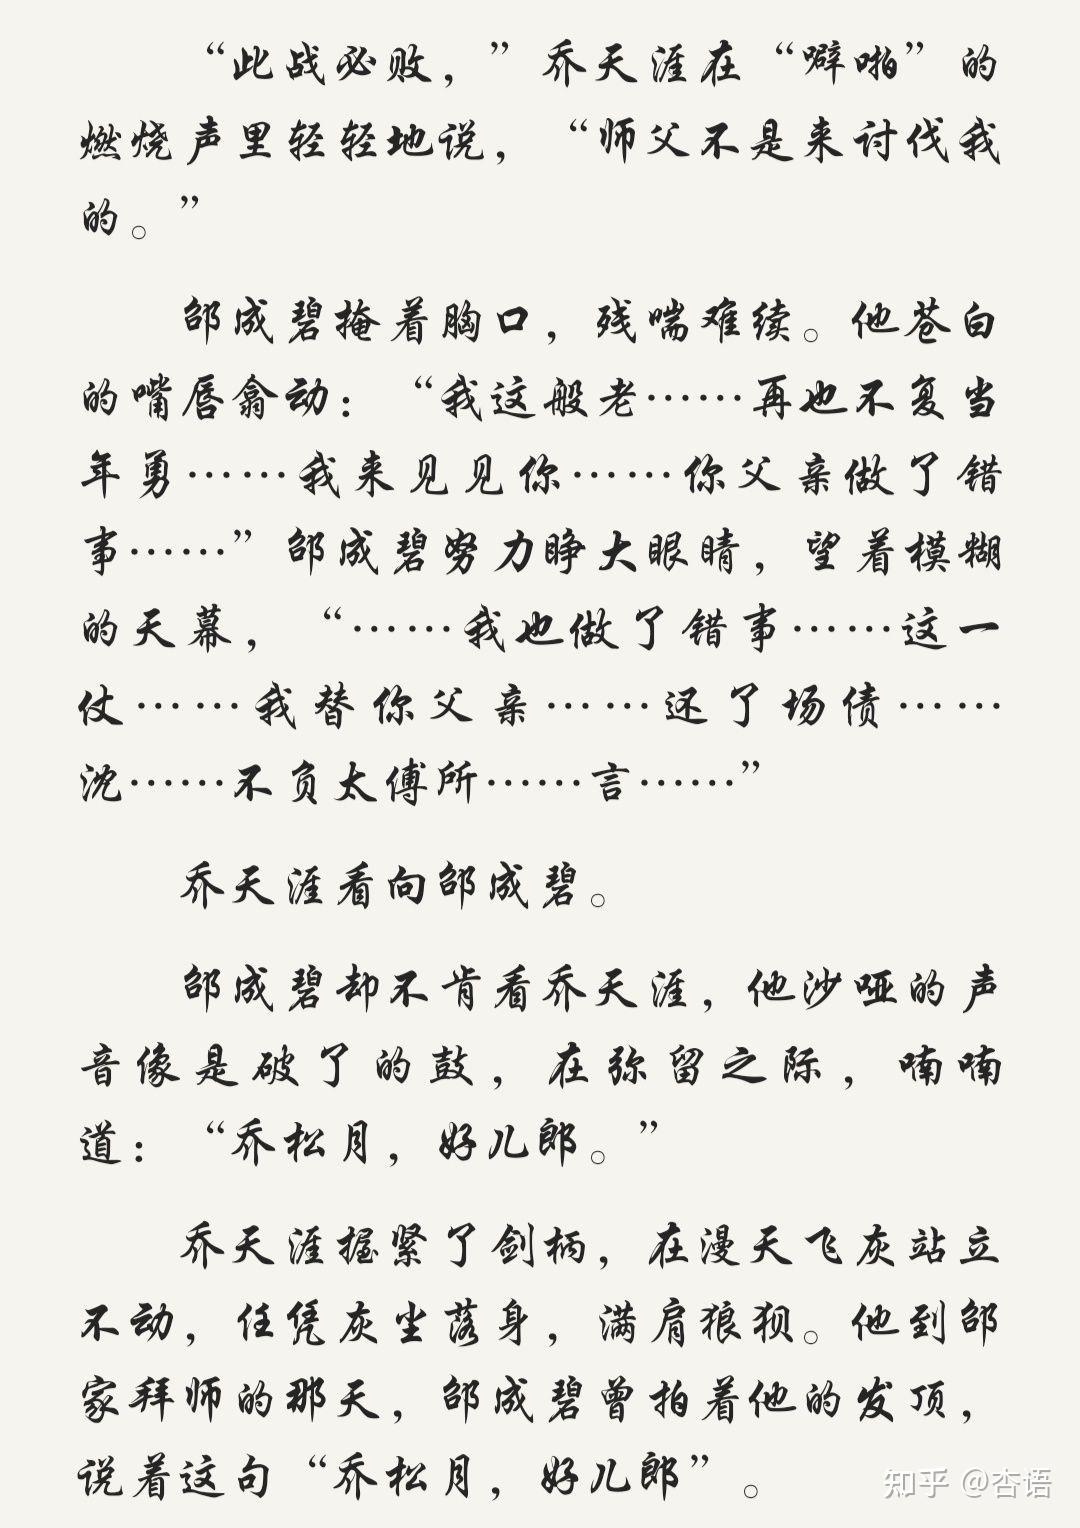 “此战必败，”乔天涯在“噼啪”的
燃烧声里轻轻地说，“师父不是来讨伐我
的。”
邵成碧掩着胸口，残喘难续。他苍白
的嘴唇翕动：“我这般老……再也不复当
年勇……我来见见你……你父亲做了错
事……”邵成碧努力睁大眼睛，望着模糊
的天幕，“……我也做了错事……这一
仗……我替你父亲……还了场债……
沈……不负太傅所……言……”
乔天涯看向邵成碧。
邵成碧却不肯看乔天涯，他沙哑的声
音像是破了的鼓，在弥留之际，喃喃
道：“乔松月，好儿郎。”
乔天涯握紧了剑柄，在漫天飞灰站立
不动，任凭灰尘落身，满肩狼狈。他到邵
家拜师的那天，邵成碧曾拍着他的发顶，
说着这句“乔松月，好儿郎”。
知乎 @杏语